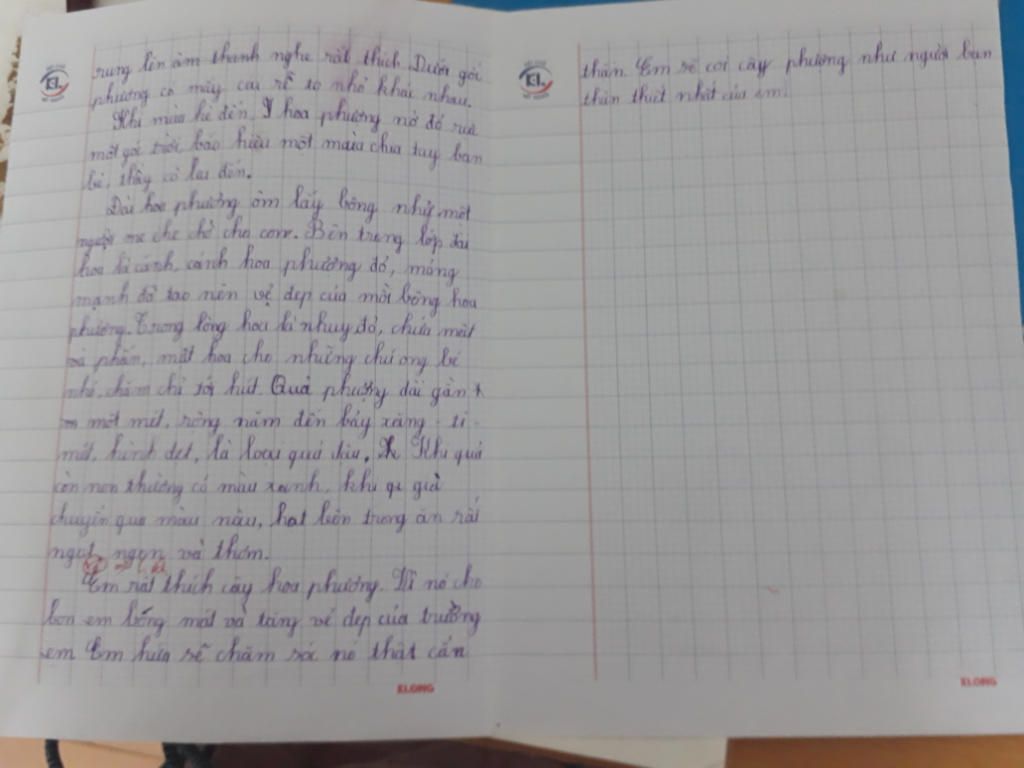 rung lên âm thanh nghe rất thích. Dưới gốc
phượng có mấy cái rễ to nhỏ khác nhau.
Khi mùa hè đến, hoa phượng nở đỏ rực
một góc trời báo hiệu một mùa chia tay bạn
bè, thầy cô lại đến.
Đài hoa phượng ôm lấy bông như một
người mẹ che chở cho con. Bên trong lớp đài
hoa là cánh, cánh hoa phượng đỏ, mỏng
manh đã tạo nên vẻ đẹp của mỗi bông hoa
phượng. Trong lòng hoa là nhụy đỏ, chứa mật
và phấn, mật hoa cho những chú ong bé
nhỏ, chăm chỉ tới hút. Quả phượng dài gần
một mét, rộng năm đến bảy xăng - ti -
mét, hình dẹt, là loại quả đậu. Khi quả
còn non thường có màu xanh, khi già
chuyển qua màu nâu, hạt bên trong ăn rất
ngọt ngon và thơm.
Em rất thích cây hoa phượng. Vì nó cho
bọn em bóng mát và tăng vẻ đẹp của trường
em Em hứa sẽ chăm sóc nó thật cẩn
KLONG
KL
thận. Em sẽ coi cây phượng như người bạn
thân thiết nhất của em.
KLONG